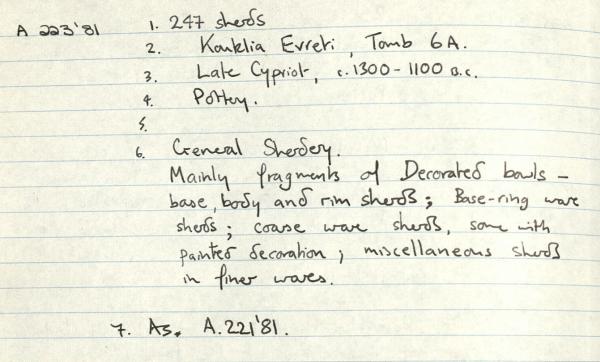 A 223'81
1. 247 sherds
2. Kouklia Evreti, Tomb 6A.
3. Late Cypriot, c.1300-1100 B.C.
4. Pottery.
5.
6. General Sherdery.
Mainly fragments of Decorated bowls -
base, body and rim sherds; Base-ring ware
sherds; coarse ware sherds, some with
painted decoration; miscellaneous sherds
in finer wares.
7. As. A.221'81.